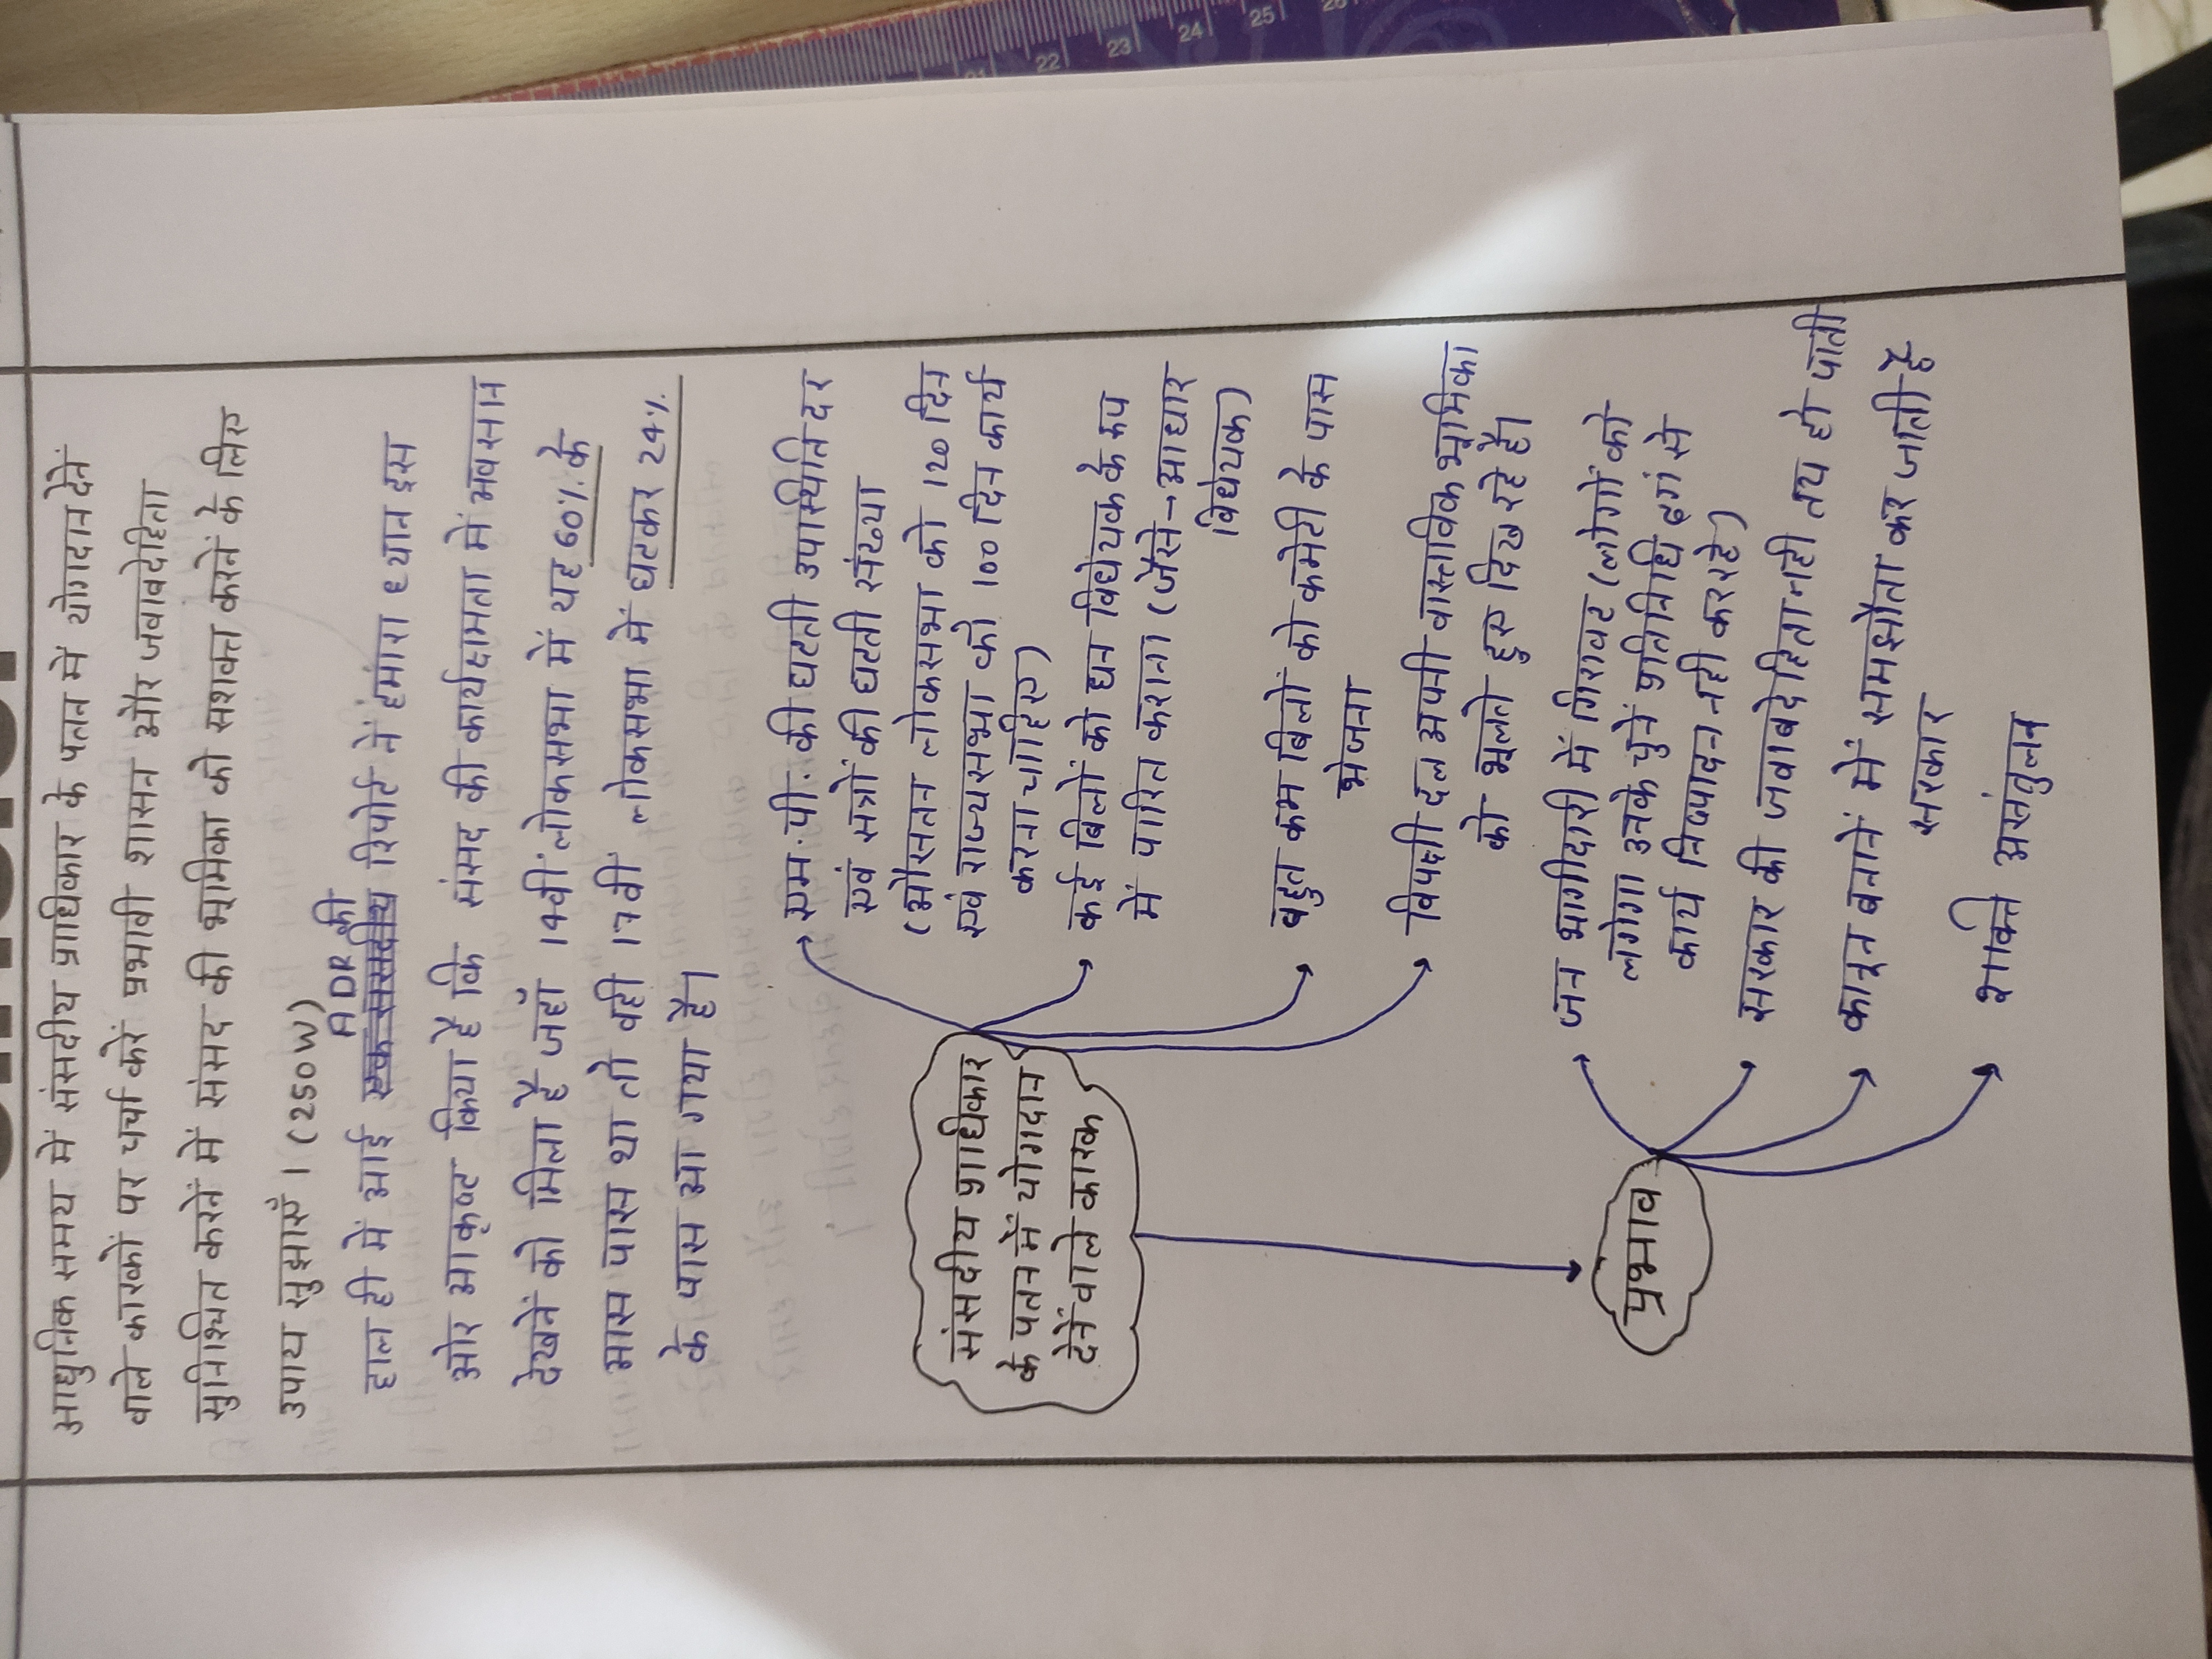 आधुनिक समय में संसदीय प्राधिकार के पतन में योगदान देनें
वाले कारकों पर चर्चा करें प्रभावी शासन और जवाबदेहिता
सुनिश्चित करनें में संसद की भूमिका को सशक्त करनें के लिए
उपाय सुझाएँ । (250W)
ADR की
हाल ही में आई एक संसदीय रिपोर्ट नें हमारा ध्यान इस
ओर आकृष्ट किया है कि संसद की कार्यक्षमता में अवसान
देखनें को मिला है जहाँ 14वीं लोकसभा में यह 60% के
आस पास था तो वही 17वी लोकसभा में घटकर 24%
के पास आ गया है।
संसदीय प्राधिकार
के पतन में योगदान
देनें वाले कारक
एम.पी. की घटती उपास्थिति दर
एवं सत्रों की घटती संख्या
(औसतन लोकसभा को 120 दिन
एवं राज्यसभा को 100 दिन कार्य
करना चाहिए)
कई बिलों को धन विधेयक के रूप
में पारित कराना (जैसे-आधार
विधेयक)
बहुत कम बिलों को कमेटी के पास
भेजना
विपक्षी दल अपनी वास्तविक भूमिका
को भूलते हुए दिख रहे है।
प्रभाव
जन भागीदारी में गिरावट (लोगों को
लगेगा उनके चुनें प्रतिनिधि ढ़गं से
कार्य निष्पादन नही कर रहे)
सरकार की जवाबदेहिता नही तय हो पाती
कानून बनानें में समझौता कर जाती है
सरकार
शक्ति असंतुलन
22
23
24
25